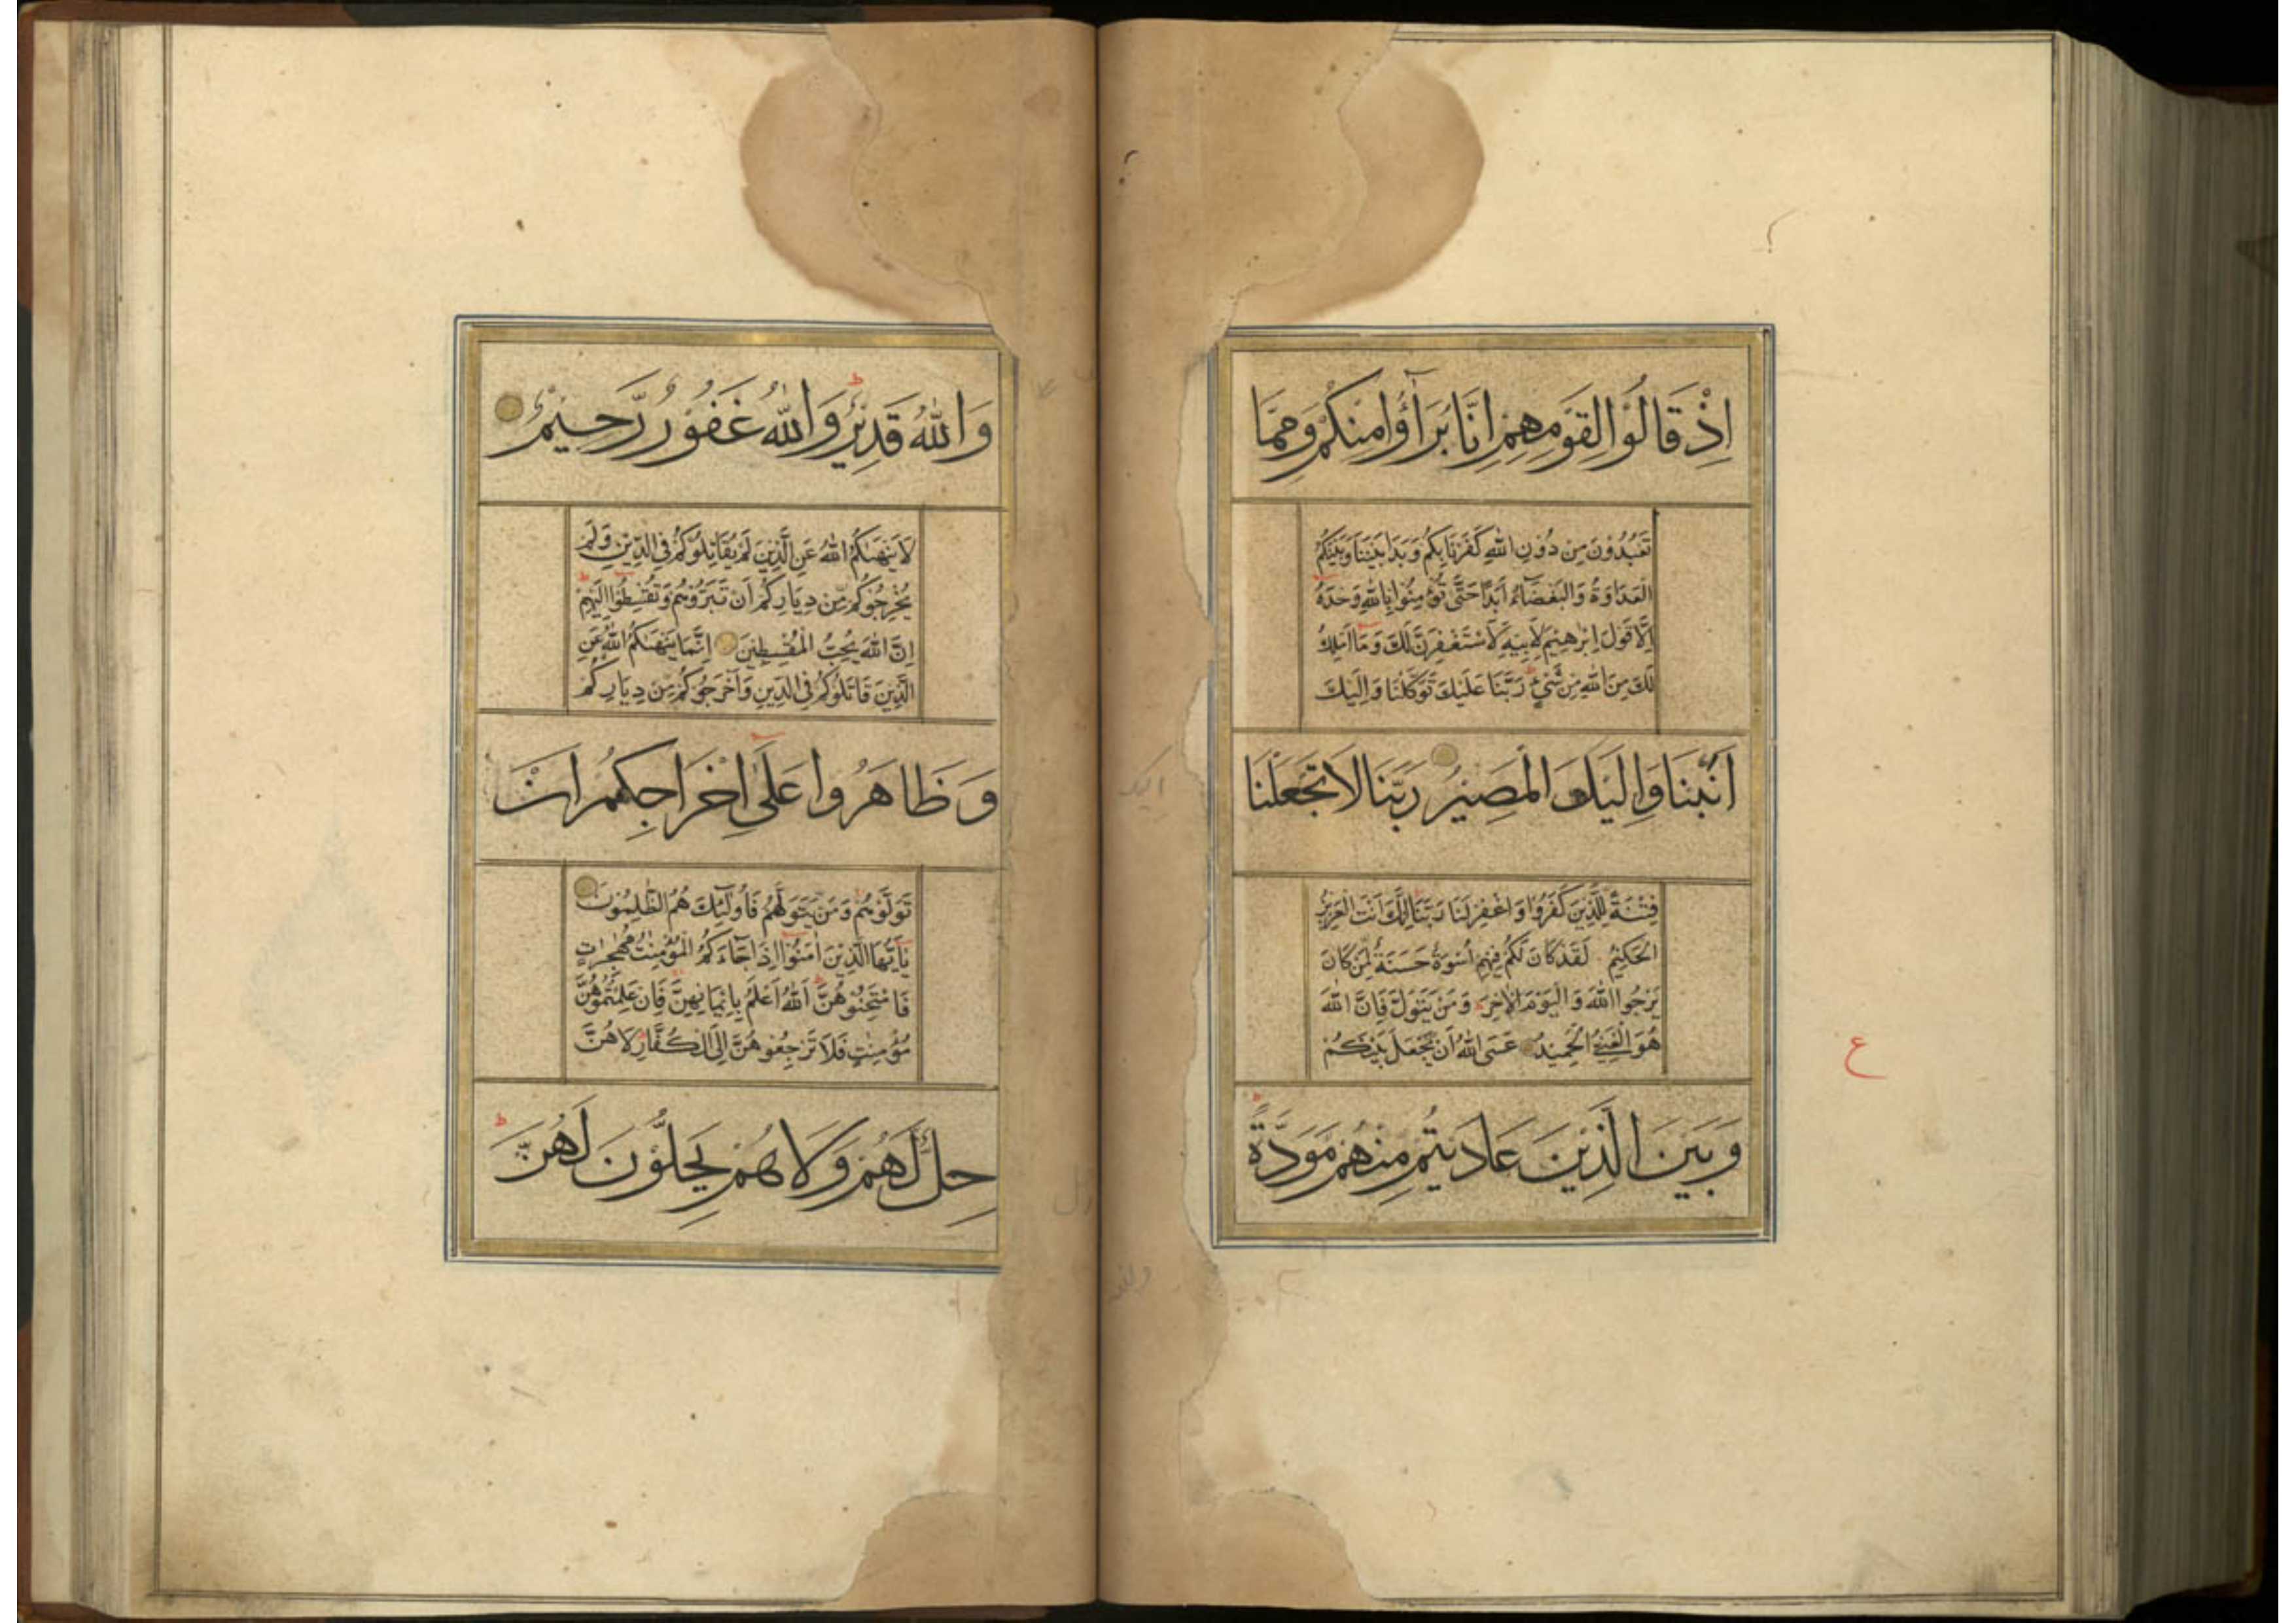 اِذْ قَالُوْا لِقَوْمِهِمْ اِنَّا بُرَآؤُا مِنْكُمْ وَمِمَّا
تَعْبُدُوْنَ مِنْ دُوْنِ اللّٰهِ كَفَرْنَا بِكُمْ وَبَدَا بَيْنَنَا وَبَيْنَكُمُ
الْعَدَاوَةُ وَالْبَغْضَآءُ اَبَدًا حَتّٰى تُؤْمِنُوْا بِاللّٰهِ وَحْدَهُ
اِلَّا قَوْلَ اِبْرٰهِيْمَ لِاَبِيْهِ لَاَسْتَغْفِرَنَّ لَكَ وَمَا اَمْلِكُ
لَكَ مِنَ اللّٰهِ مِنْ شَيْءٍ رَبَّنَا عَلَيْكَ تَوَكَّلْنَا وَاِلَيْكَ
اَنَبْنَا وَاِلَيْكَ الْمَصِيْرُ رَبَّنَا لَا تَجْعَلْنَا
فِتْنَةً لِلَّذِيْنَ كَفَرُوْا وَاغْفِرْ لَنَا رَبَّنَا اِنَّكَ اَنْتَ الْعَزِيْزُ
الْحَكِيْمُ لَقَدْ كَانَ لَكُمْ فِيْهِمْ اُسْوَةٌ حَسَنَةٌ لِمَنْ كَانَ
يَرْجُوا اللّٰهَ وَالْيَوْمَ الْاٰخِرَ وَمَنْ يَتَوَلَّ فَاِنَّ اللّٰهَ
هُوَ الْغَنِيُّ الْحَمِيْدُ عَسَى اللّٰهُ اَنْ يَجْعَلَ بَيْنَكُمْ
وَبَيْنَ الَّذِيْنَ عَادَيْتُمْ مِنْهُمْ مَوَدَّةً
ع
وَاللّٰهُ قَدِيْرٌ وَاللّٰهُ غَفُوْرٌ رَّحِيْمٌ
لَا يَنْهٰىكُمُ اللّٰهُ عَنِ الَّذِيْنَ لَمْ يُقَاتِلُوْكُمْ فِي الدِّيْنِ وَلَمْ
يُخْرِجُوْكُمْ مِّنْ دِيَارِكُمْ اَنْ تَبَرُّوْهُمْ وَتُقْسِطُوْا اِلَيْهِمْ
اِنَّ اللّٰهَ يُحِبُّ الْمُقْسِطِيْنَ اِنَّمَا يَنْهٰىكُمُ اللّٰهُ عَنِ
الَّذِيْنَ قَاتَلُوْكُمْ فِي الدِّيْنِ وَاَخْرَجُوْكُمْ مِّنْ دِيَارِكُمْ
وَظَاهَرُوْا عَلٰى اِخْرَاجِكُمْ اَنْ
تَوَلَّوْهُمْ وَمَنْ يَّتَوَلَّهُمْ فَاُولٰٓئِكَ هُمُ الظّٰلِمُوْنَ
يٰٓاَيُّهَا الَّذِيْنَ اٰمَنُوْٓا اِذَا جَآءَكُمُ الْمُؤْمِنٰتُ مُهٰجِرٰتٍ
فَامْتَحِنُوْهُنَّ اَللّٰهُ اَعْلَمُ بِاِيْمَانِهِنَّ فَاِنْ عَلِمْتُمُوْهُنَّ
مُؤْمِنٰتٍ فَلَا تَرْجِعُوْهُنَّ اِلَى الْكُفَّارِ لَا هُنَّ
حِلٌّ لَّهُمْ وَلَا هُمْ يَحِلُّوْنَ لَهُنَّ